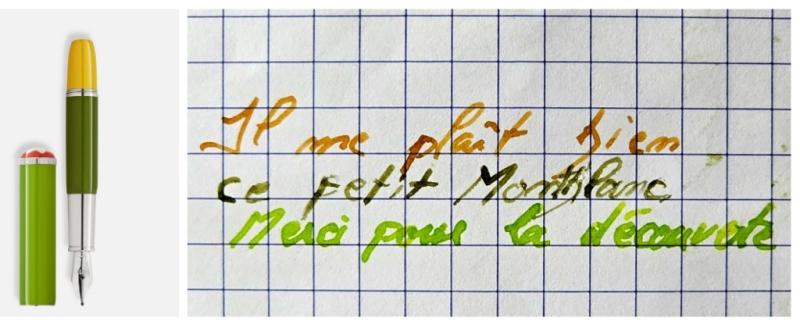 Il me plaît bien
ce petit Montblanc
Merci pour la découverte